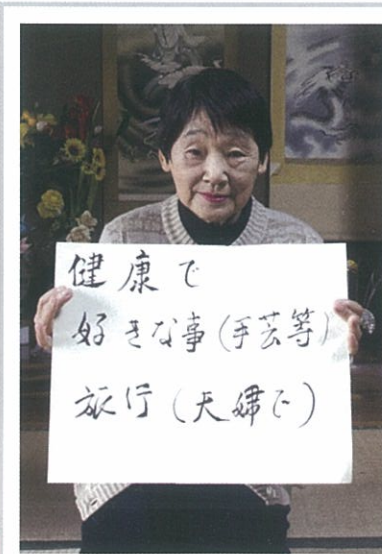 健康で
好きな事(手芸等)
旅行(夫婦で)